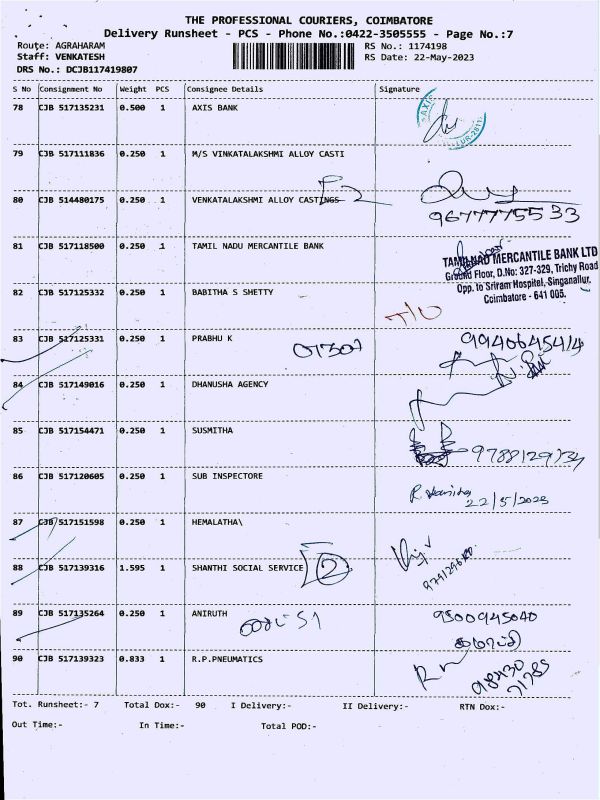 THE PROFESSIONAL COURIERS, COIMBATORE
Delivery Runsheet - PCS - Phone No.:0422-3505555 - Page No.:7
Route: AGRAHARAM RS No.: 1174198
Staff: VENKATESH RS Date: 22-May-2023
DRS No.: DCJB117419807
S No Consignment No Weight PCS Consignee Details Signature
78 CJB 517135231 0.500 1 AXIS BANK
AXIS
79 CJB 517111836 0.250 1 M/S VINKATALAKSHMI ALLOY CASTI
80 CJB 514480175 0.250 1 VENKATALAKSHMI ALLOY CASTINGS
9677775533
81 CJB 517118500 0.250 1 TAMIL NADU MERCANTILE BANK
TAMILNAD MERCANTILE BANK LTD
Ground Floor, D.No: 327-329, Trichy Road
Opp. to Sriram Hospital, Singanallur,
Coimbatore - 641 005.
82 CJB 517125332 0.250 1 BABITHA S SHETTY
83 CJB 517125331 0.250 1 PRABHU K
9940645414
84 CJB 517149016 0.250 1 DHANUSHA AGENCY
85 CJB 517154471 0.250 1 SUSMITHA
9788129734
86 CJB 517120605 0.250 1 SUB INSPECTORE
22/5/2023
87 CJB 517151598 0.250 1 HEMALATHA\
88 CJB 517139316 1.595 1 SHANTHI SOCIAL SERVICE
2
89 CJB 517135264 0.250 1 ANIRUTH
9500945040
90 CJB 517139323 0.833 1 R.P.PNEUMATICS
Tot. Runsheet:- 7 Total Dox:- 90 I Delivery:- II Delivery:- RTN Dox:-
Out Time:- In Time:- Total POD:-